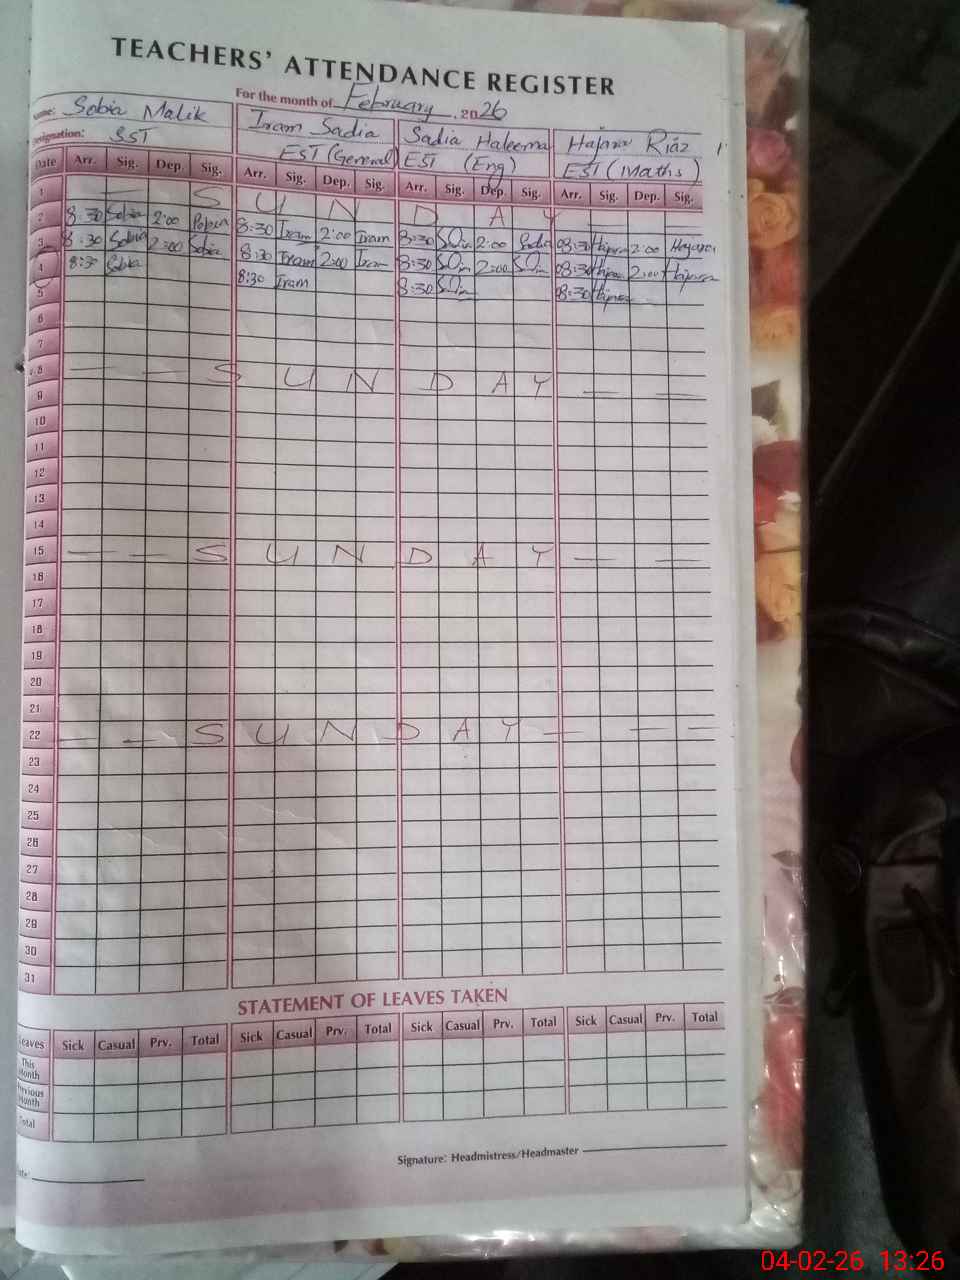 TEACHERS' ATTENDANCE REGISTER
For the month of February, 2026
Name: Sobia Malik Iram Sadia Sadia Haleema Hajara Riaz
Designation: SST EST (General) EST (Eng) EST (Maths)
Date Arr. Sig. Dep. Sig. Arr. Sig. Dep. Sig. Arr. Sig. Dep. Sig. Arr. Sig. Dep. Sig.
1 — S U N D A Y
2 8:30 Sobia 2:00 8:30 Iram 2:00 Iram 8:30 2:00 Sadia 08:30 2:00
3 8:30 Sobia 2:00 Sobia 8:30 Iram 2:00 Iram 8:30 2:00 08:30 2:00
4 8:30 Sobia 8:30 Iram 8:30 08:30
5
6
7
8 — — S U N D A Y — —
9
10
11
12
13
14
15 — — S U N D A Y — —
16
17
18
19
20
21
22 — — S U N D A Y — — —
23
24
25
26
27
28
29
30
31
STATEMENT OF LEAVES TAKEN
Leaves Sick Casual Prv. Total Sick Casual Prv. Total Sick Casual Prv. Total Sick Casual Prv. Total
This Month
Previous Month
Total
Signature: Headmistress/Headmaster
Date:
04-02-26 13:26